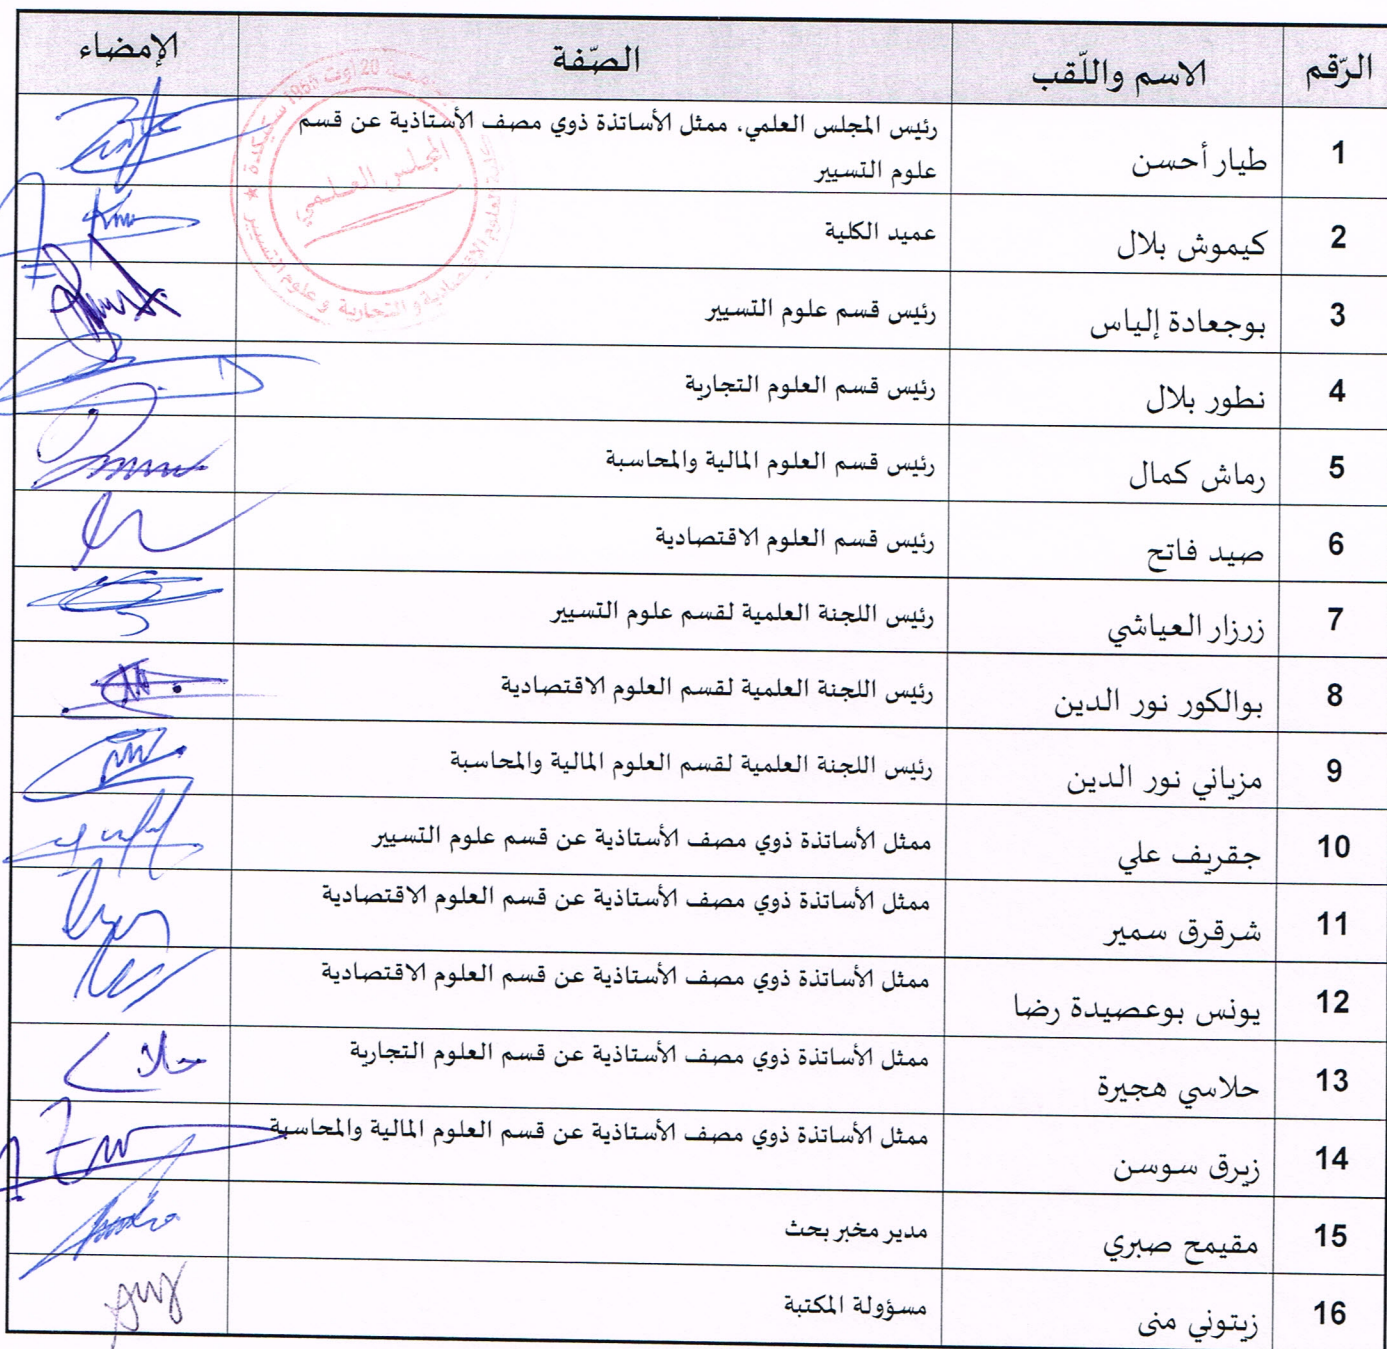 الرّقم الاسم واللّقب الصّفة الإمضاء
1 طيار أحسن رئيس المجلس العلمي، ممثل الأساتذة ذوي مصف الأستاذية عن قسم
علوم التسيير
2 كيموش بلال عميد الكلية
3 بوجعادة إلياس رئيس قسم علوم التسيير
4 نطور بلال رئيس قسم العلوم التجارية
5 رماش كمال رئيس قسم العلوم المالية والمحاسبة
6 صيد فاتح رئيس قسم العلوم الاقتصادية
7 زرزار العياشي رئيس اللجنة العلمية لقسم علوم التسيير
8 بوالكور نور الدين رئيس اللجنة العلمية لقسم العلوم الاقتصادية
9 مزياني نور الدين رئيس اللجنة العلمية لقسم العلوم المالية والمحاسبة
10 جقريف علي ممثل الأساتذة ذوي مصف الأستاذية عن قسم علوم التسيير
11 شرقرق سمير ممثل الأساتذة ذوي مصف الأستاذية عن قسم العلوم الاقتصادية
12 يونس بوعصيدة رضا ممثل الأساتذة ذوي مصف الأستاذية عن قسم العلوم الاقتصادية
13 حلاسي هجيرة ممثل الأساتذة ذوي مصف الأستاذية عن قسم العلوم التجارية
14 زيرق سوسن ممثل الأساتذة ذوي مصف الأستاذية عن قسم العلوم المالية والمحاسبة
15 مقيمح صبري مدير مخبر بحث
16 زيتوني منى مسؤولة المكتبة
20 أوت 1955 سكيكدة
العلوم الاقتصادية و التجارية وعلوم التسيير
المجلس العلمي